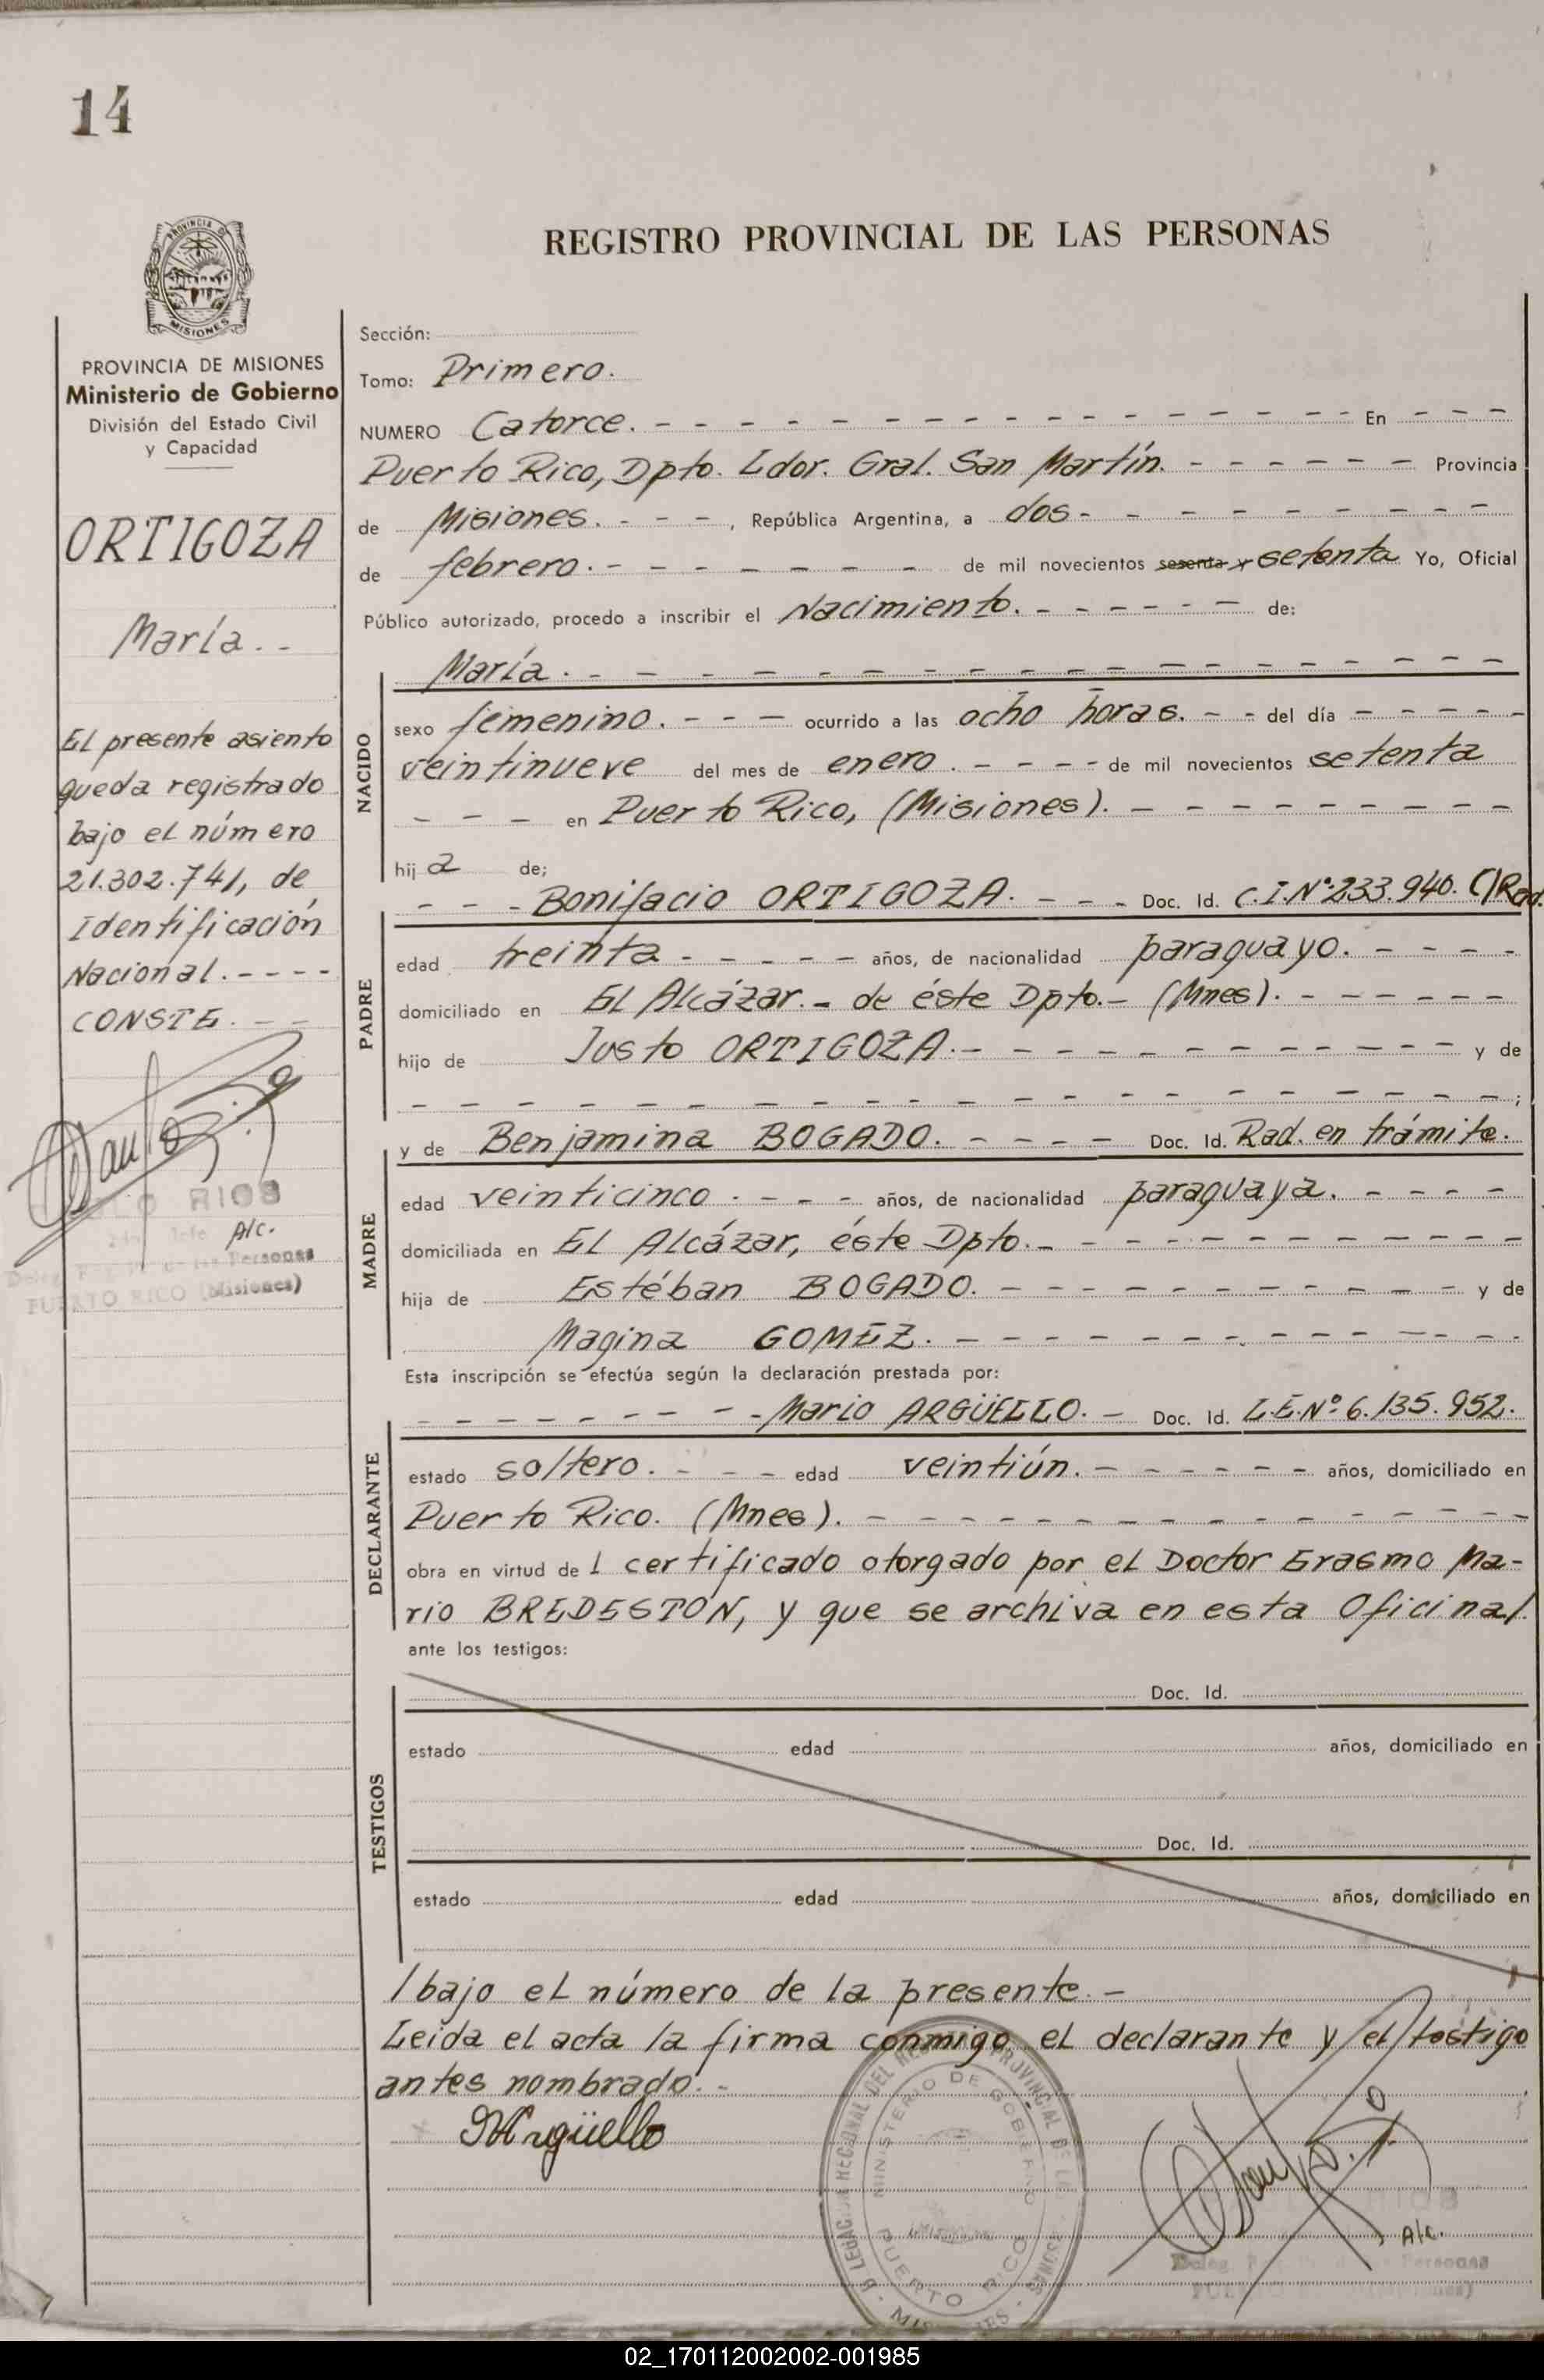 14
REGISTRO PROVINCIAL DE LAS PERSONAS
PROVINCIA DE MISIONES
Ministerio de Gobierno
División del Estado Civil
y Capacidad
ORTIGOZA
María. . -
El presente asiento
queda registrado
bajo el número
21.302.741, de
Identificación
Nacional. - - - -
CONSTE. - -
RIOS
A/c.
Personas
PUERTO RICO (Misiones)
Sección:
Tomo: Primero.
NUMERO Catorce. - - - En - - -
Puerto Rico, Dpto. Ldor. Gral. San Martín. - - - Provincia
de Misiones. - - - , República Argentina, a dos - - -
de febrero. - - - de mil novecientos sesenta y setenta Yo, Oficial
Público autorizado, procedo a inscribir el Nacimiento. - - - de:
NACIDO
María. - - -
sexo femenino. - - - ocurrido a las ocho horas. - - del día - - -
veintinueve del mes de enero. - - - de mil novecientos setenta
- - - en Puerto Rico, (Misiones). - - -
hij a de;
PADRE
- - - Bonifacio ORTIGOZA. - - - Doc. Id. C.I.Nº 233.940. C/Rad.
edad treinta - - - años, de nacionalidad paraguayo. - - -
domiciliado en El Alcázar. - de éste Dpto. - (Mnes). - - -
hijo de Justo ORTIGOZA. - - - y de
- - - ;
MADRE
y de Benjamina BOGADO. - - - Doc. Id. Rad. en trámite.
edad veinticinco. - - - años, de nacionalidad paraguaya. - - -
domiciliada en El Alcázar, éste Dpto. - - -
hija de Estéban BOGADO. - - - y de
Magina GOMEZ. - - -
Esta inscripción se efectúa según la declaración prestada por:
DECLARANTE
- - - Mario ARGÜELLO. - Doc. Id. L.E.Nº 6.135.952.
estado soltero. - - - edad veintiún. - - - años, domiciliado en
Puerto Rico. (Mnes). - - -
obra en virtud de 1 certificado otorgado por el Doctor Erasmo Ma-
rio BREDESTON, y que se archiva en esta Oficina/.
ante los testigos:
TESTIGOS
Doc. Id.
estado edad años, domiciliado en
Doc. Id.
estado edad años, domiciliado en
/bajo el número de la presente. -
Leida el acta la firma conmigo el declarante y el testigo
antes nombrado. -
MArgüello
DELEGACION REGIONAL DEL REGISTRO PROVINCIAL DE LAS PERSONAS
MINISTERIO DE GOBIERNO
PUERTO RICO
MISIONES
A/c.
Personas
02_170112002002-001985